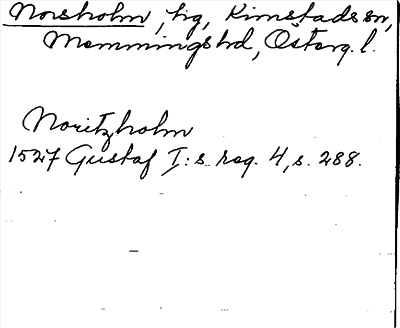 Norsholm, hg, Kimstads sn,
Memmings hd, Österg. l.
Noritzholm
1527 Gustaf I:s reg. 4, s. 288.